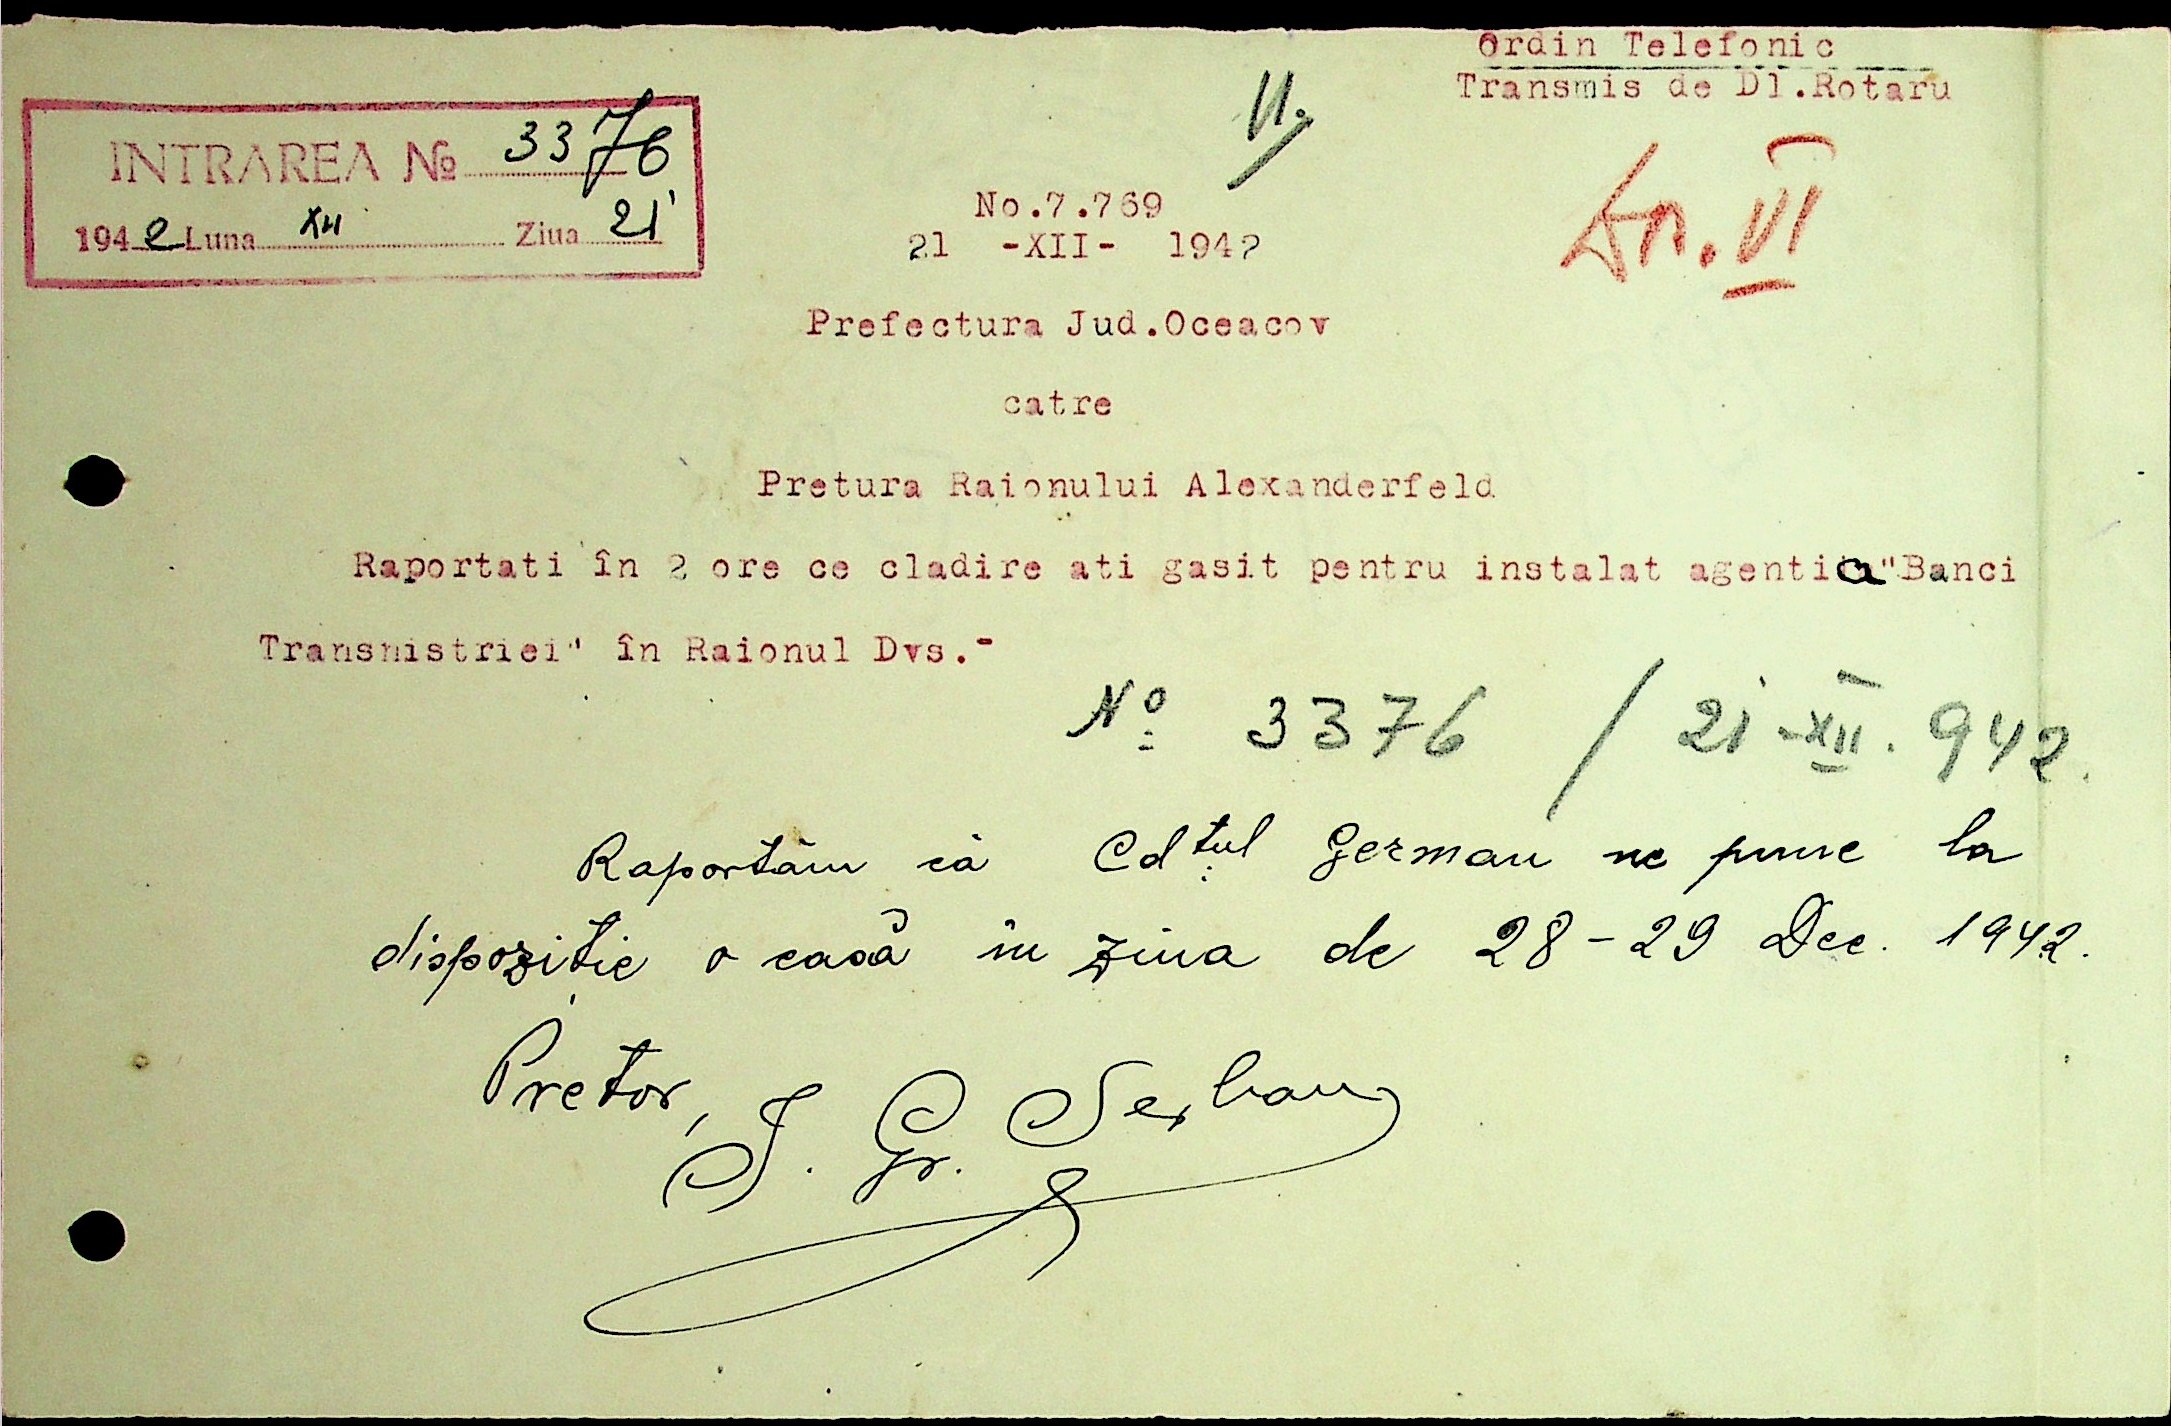 Ordin Telefonic
Transmis de Dl.Rotaru
INTRAREA № 3376
1942 Luna XII Ziua 21
VI.
No.7.769
21 -XII- 1942
VI
Prefectura Jud.Oceacov
catre
Pretura Raionului Alexanderfeld
Raportati în 2 ore ce cladire ati gasit pentru instalat agentia "Banci
Transnistriei" în Raionul Dvs.-
Nº 3376 / 21-XII.942.
Raportăm că Cdtul German ne pune la
dispoziție o casă în ziua de 28-29 Dec. 1942.
Pretor,
I. Gr. Serban